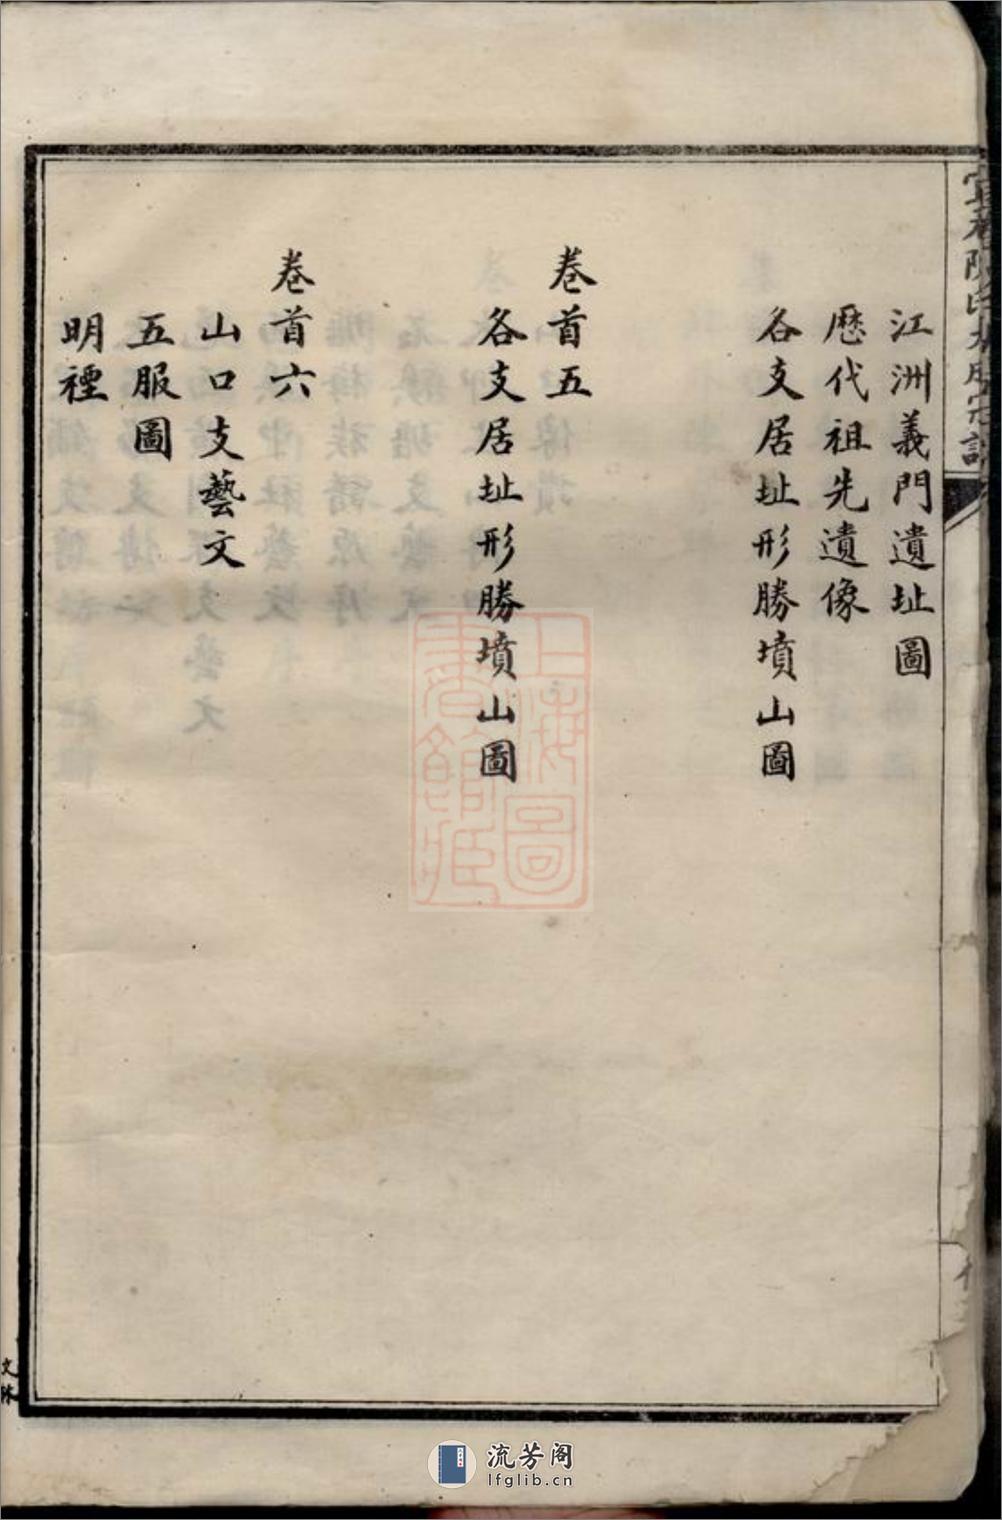 江洲義門遺址圖
歷代祖先遺像
各支居址形勝墳山圖
卷首五
各支居址形勝墳山圖
卷首六
山口支藝文
五服圖
明禋
上海圖書館藏
文林
流芳阁
lfglib.cn